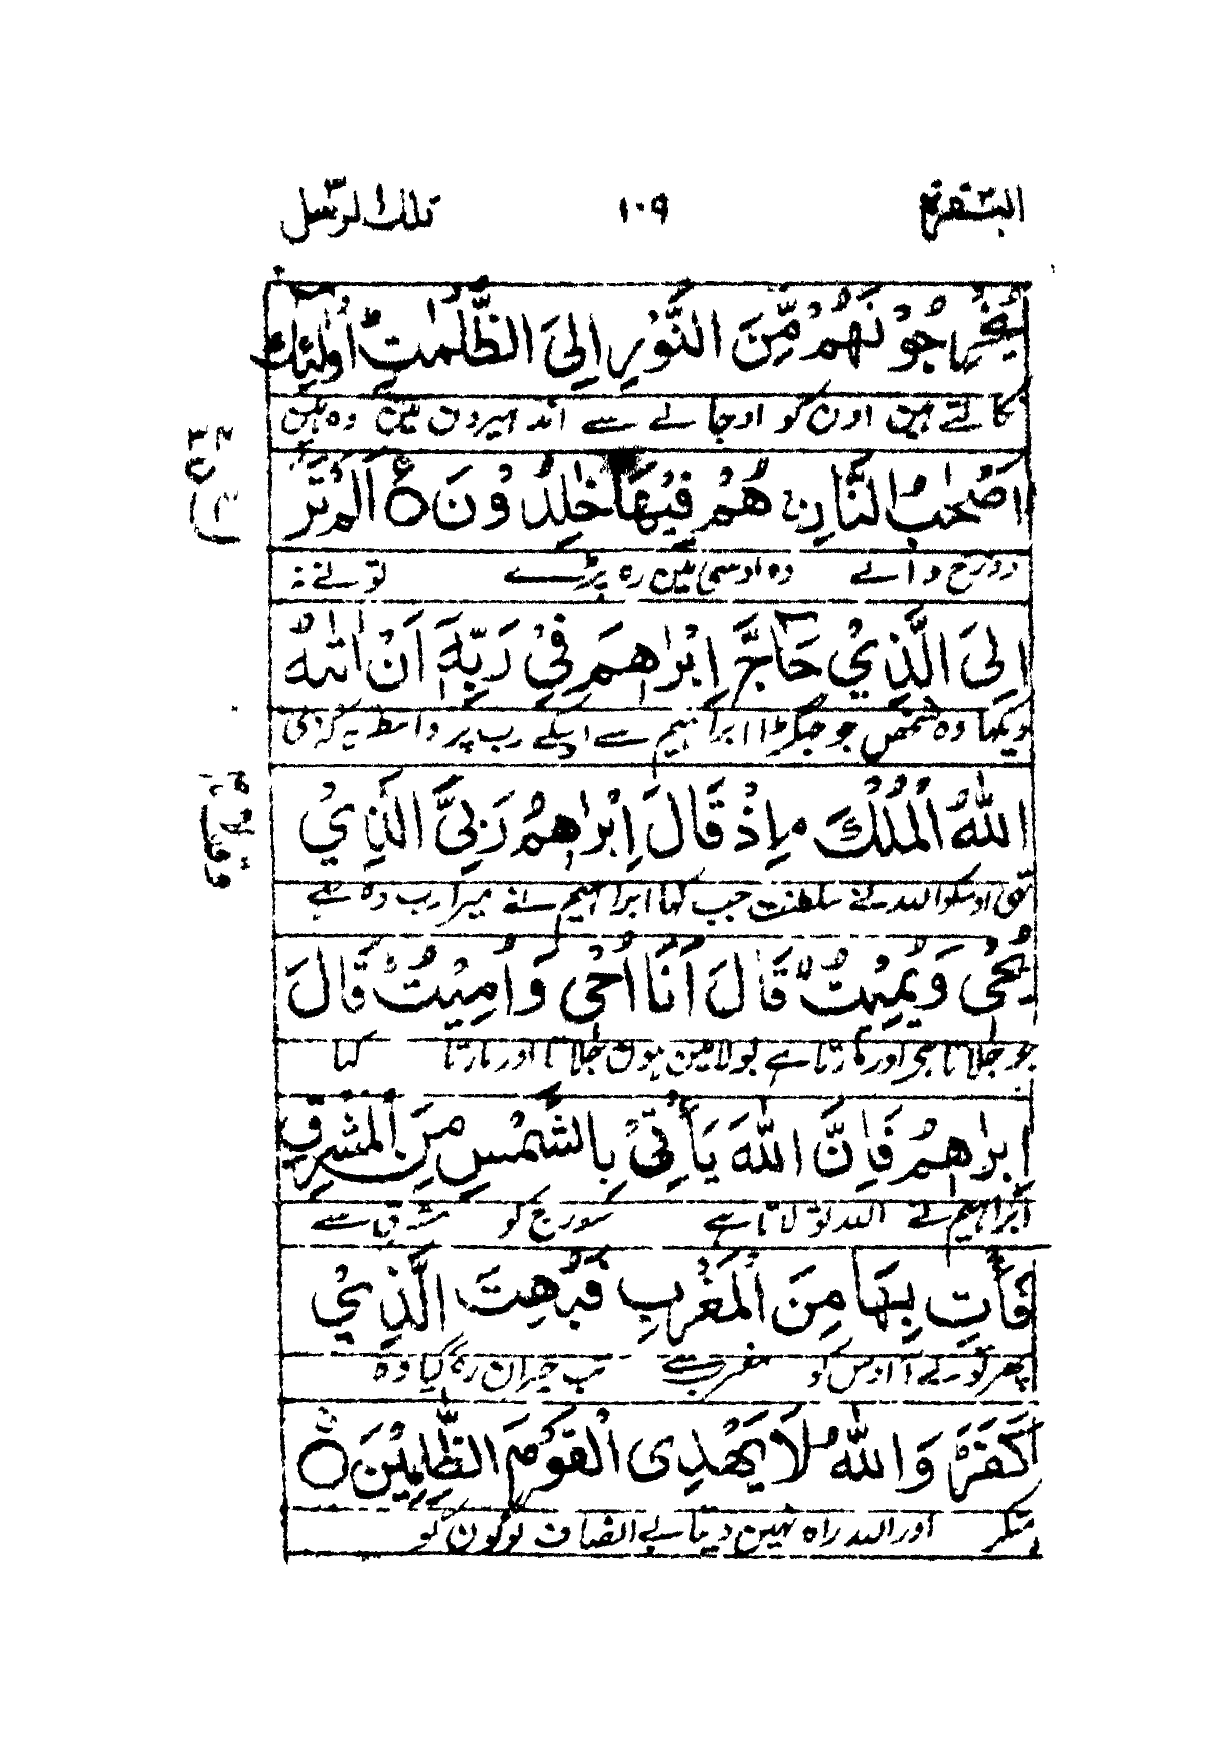 البقرة ٢ ١٠٩ تلك الرسل ٣
يُخْرِجُوْنَهُمْ مِّنَ النُّوْرِ اِلَى الظُّلُمٰتِ ؕ اُولٰٓئِكَ
نکالتے ہین اون کو اوجالے سے اندہیرون مین وہ ہین
اَصْحٰبُ النَّارِ ۚ هُمْ فِيْهَا خٰلِدُوْنَ ۟ اَلَمْ تَرَ
دوزخ والے وہ اوسی مین رہ پڑے تو نے نہ
اِلَى الَّذِيْ حَآجَّ اِبْرٰهٖمَ فِيْ رَبِّهٖٓ اَنْ اٰتٰىهُ
دیکھا وہ شخص جو جھگڑا ابراہیم سے اسکے رب پر واسطہ یہ کہ دی
اللّٰهُ الْمُلْكَ ۘ اِذْ قَالَ اِبْرٰهٖمُ رَبِّيَ الَّذِيْ
تھی اوسکو اللہ نے سلطنت جب کہا ابراہیم نے میرا رب وہ ہے
يُحْيٖ وَيُمِيْتُ ۙ قَالَ اَنَا اُحْيٖ وَاُمِيْتُ ؕ قَالَ
جو جلاتا ہی اور مارتا ہے بولا مین ہون جلاتا اور مارتا کہا
اِبْرٰهٖمُ فَاِنَّ اللّٰهَ يَاْتِيْ بِالشَّمْسِ مِنَ الْمَشْرِقِ
ابراہیم نے اللہ تو لاتا ہے سورج کو مشرق سے
فَاْتِ بِهَا مِنَ الْمَغْرِبِ فَبُهِتَ الَّذِيْ
پھر تو لے آ اوس کو مغرب سے تب حیران رہ گیا وہ
كَفَرَ ؕ وَاللّٰهُ لَا يَهْدِي الْقَوْمَ الظّٰلِمِيْنَ ۟ۚ
منکر اور اللہ راہ نہین دیتا بے انصاف لوگون کو